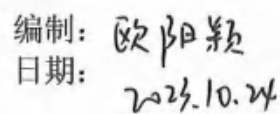 编制：欧阳颖
日期：
2023.10.24